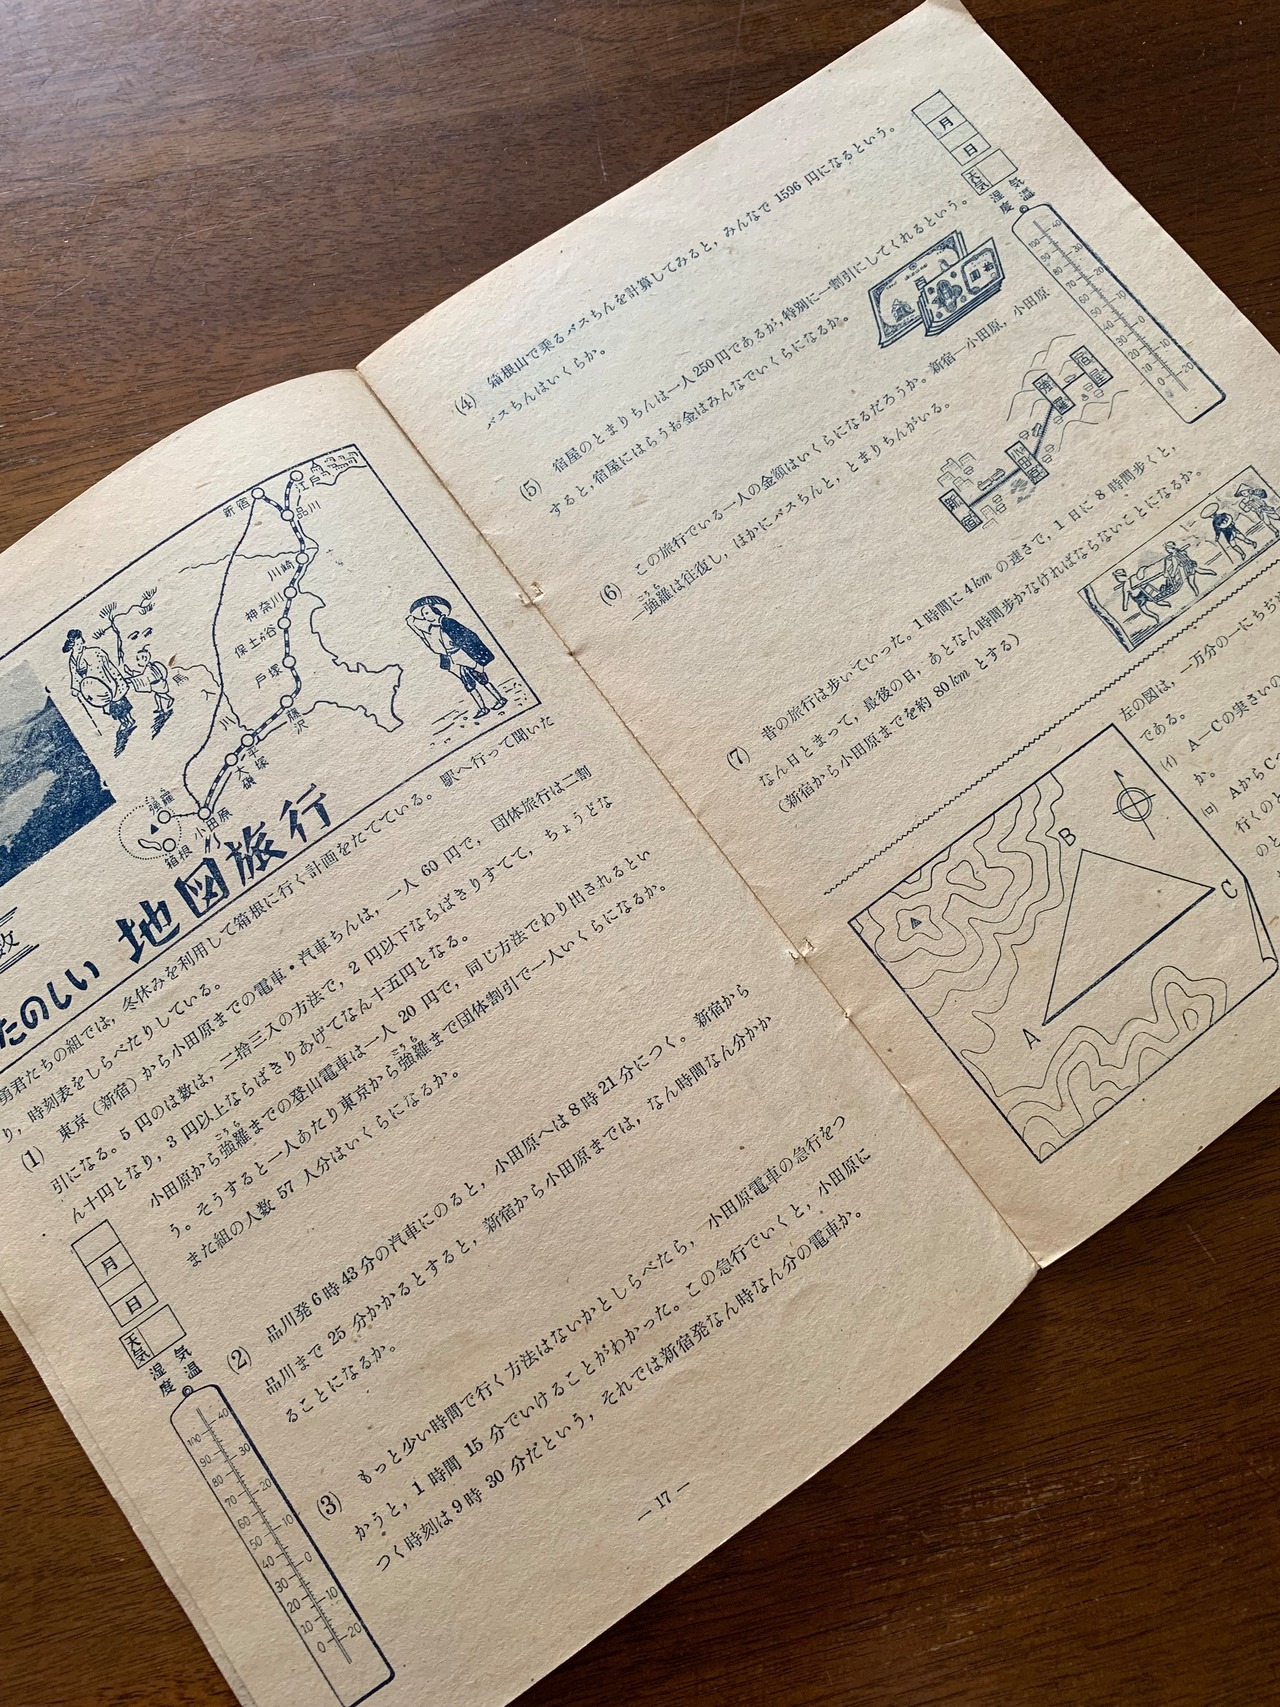 新宿
江戸
品川
川崎
神奈川
保土ヶ谷
戸塚
藤沢
馬
入
川
平塚
大磯
小田原
強羅
箱根
数
たのしい地図旅行
勇君たちの組では，冬休みを利用して箱根に行く計画をたてている。駅へ行って聞いた
り，時刻表をしらべたりしている。
(1) 東京（新宿）から小田原までの電車・汽車ちんは，一人 60 円で，団体旅行は二割
引になる。5 円のは数は，二捨三入の方法で，2 円以下ならばきりすてて，ちょうどな
ん十円となり，3 円以上ならばきりあげてなん十五円となる。
小田原から強羅までの登山電車は一人 20 円で，同じ方法でわり出されるとい
こうら
う。そうすると一人あたり東京から強羅まで団体割引で一人いくらになるか。
こうら
また組の人数 57 人分はいくらになるか。
月
日
天気
気温
湿度
100 90 80 70 60 50 40 30 20 10 0
40 30 20 10 0 10 20
(2) 品川発 6 時 43 分の汽車にのると，小田原へは 8 時 21 分につく。新宿から
品川まで 25 分かかるとすると，新宿から小田原までは，なん時間なん分かか
ることになるか。
(3) もっと少い時間で行く方法はないかとしらべたら，小田原電車の急行をつ
かうと，1 時間 15 分でいけることがわかった。この急行でいくと，小田原に
つく時刻は 9 時 30 分だという，それでは新宿発なん時なん分の電車か。
— 17 —
(4) 箱根山で乗るバスちんを計算してみると，みんなで 1596 円になるという。
バスちんはいくらか。
(5) 宿屋のとまりちんは一人 250 円であるが，特別に一割引にしてくれるという。
すると，宿屋にはらうお金はみんなでいくらになるか。
(6) この旅行でいる一人の金額はいくらになるだろうか。新宿—小田原，小田原
—強羅は往復し，ほかにバスちんと，とまりちんがいる。
ごうら
新宿
小田原
強羅
宿屋
(7) 昔の旅行は歩いていった。1 時間に 4 km の速さで，1 日に 8 時間歩くと，
なん日とまって，最後の日，あとなん時間歩かなければならないことになるか。
（新宿から小田原までを約 80 km とする）
月
日
天気
気温
湿度
100 90 80 70 60 50 40 30 20 10 0
40 30 20 10 0 10 20
左の図は，一万分の一にちぢ
である。
(イ) A—Cの実さいの
か。
(ロ) AからCへ
行くのと
のと
A
B
C